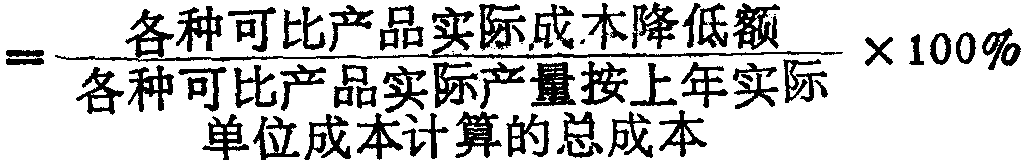 = 各种可比产品实际成本降低额 × 100%
各种可比产品实际产量按上年实际
单位成本计算的总成本